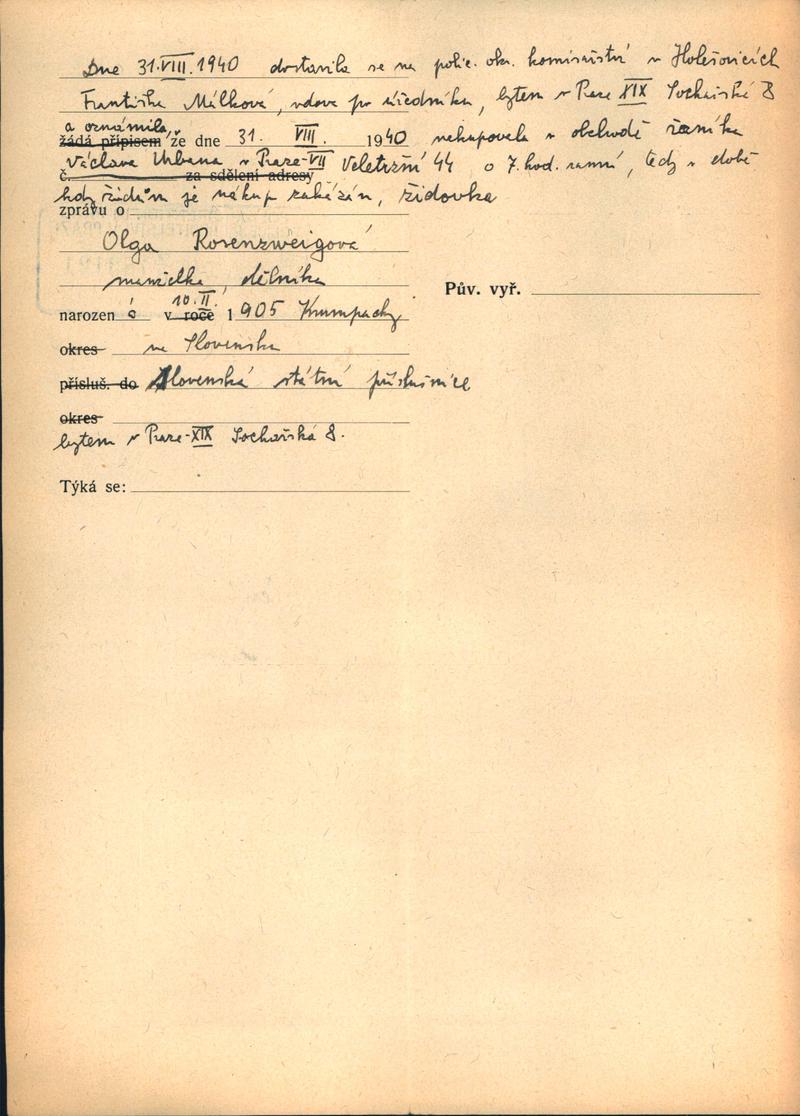 Dne 31.VIII.1940 dostavila se na polic. okr. komisařství v Holešovicích
Františka Málková, vdova po úředníku, bytem v Praze XIX Sochařská 8
a oznámila,
žádá přípisem že dne 31. VIII. 1940 nakupovala v obchodě řezníka
Václava Urbana v Praze-VII Veletržní 44 o 7. hod. ranní, tedy v době
č. za sdělení adresy
kdy židům je nákup zakázán, židovka
zprávu o
Olga Rosenzweigová
manželka dělníka
Pův. vyř.
10.II.
narozená v roce 1905 Krumpachy
okres na Slovensku
přísluš. do Slovenská státní příslušnice
okres
bytem v Praze-XIX Sochařská 8.
Týká se: